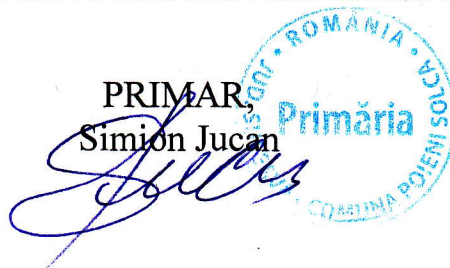 PRIMAR,
Simion Jucan
ROMÂNIA
Primăria
COMUNA POIENI SOLCA